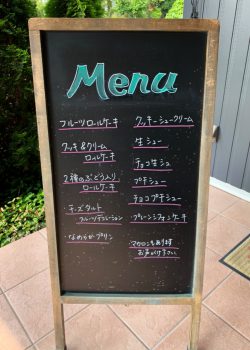 Menu
フルーツロールケーキ
クッキー&クリーム
ロールケーキ
2種のぶどう入り
ロールケーキ
・チーズタルト
フルーツデコレーション
・なめらかプリン
クッキーシュークリーム
生シュー
チョコ生シュー
プチシュー
チョコプチシュー
プレーンシフォンケーキ
マカロンもあります
お声がけ下さい